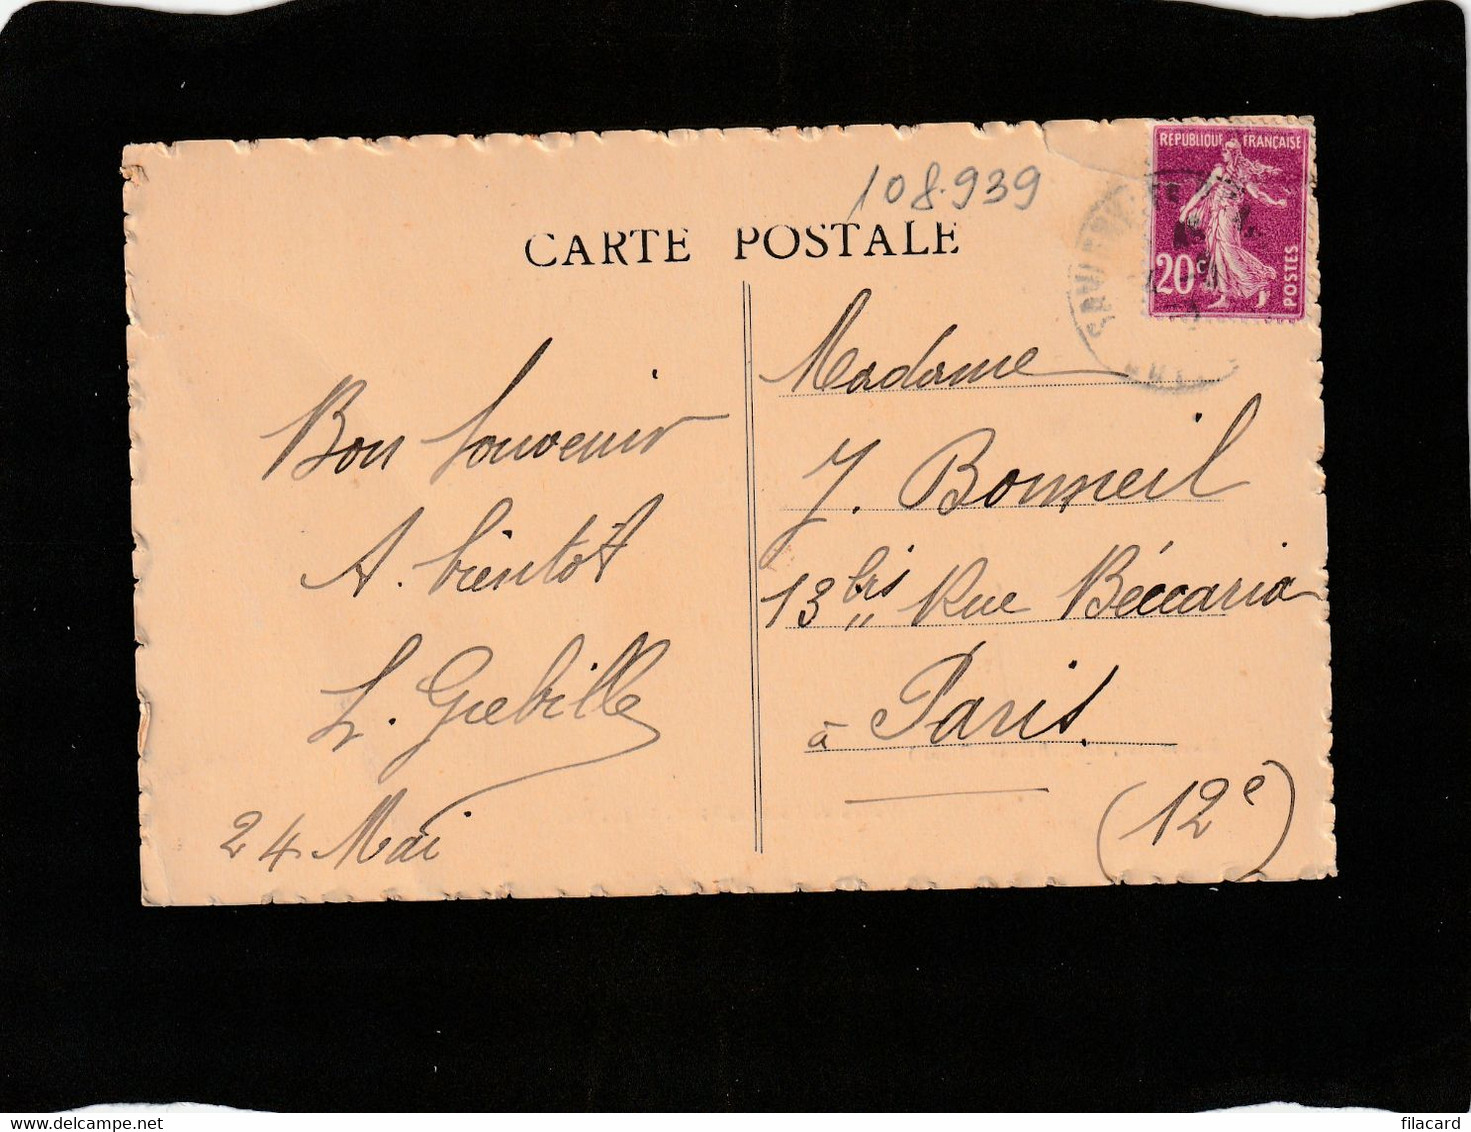 108.939
CARTE POSTALE
REPUBLIQUE FRANÇAISE
20c
POSTES
Bon Souvenir
A. bientôt
24 Mai
Madame
J. Bonneil
13 bis Rue Béccaria
à Paris
(12e)
filacard